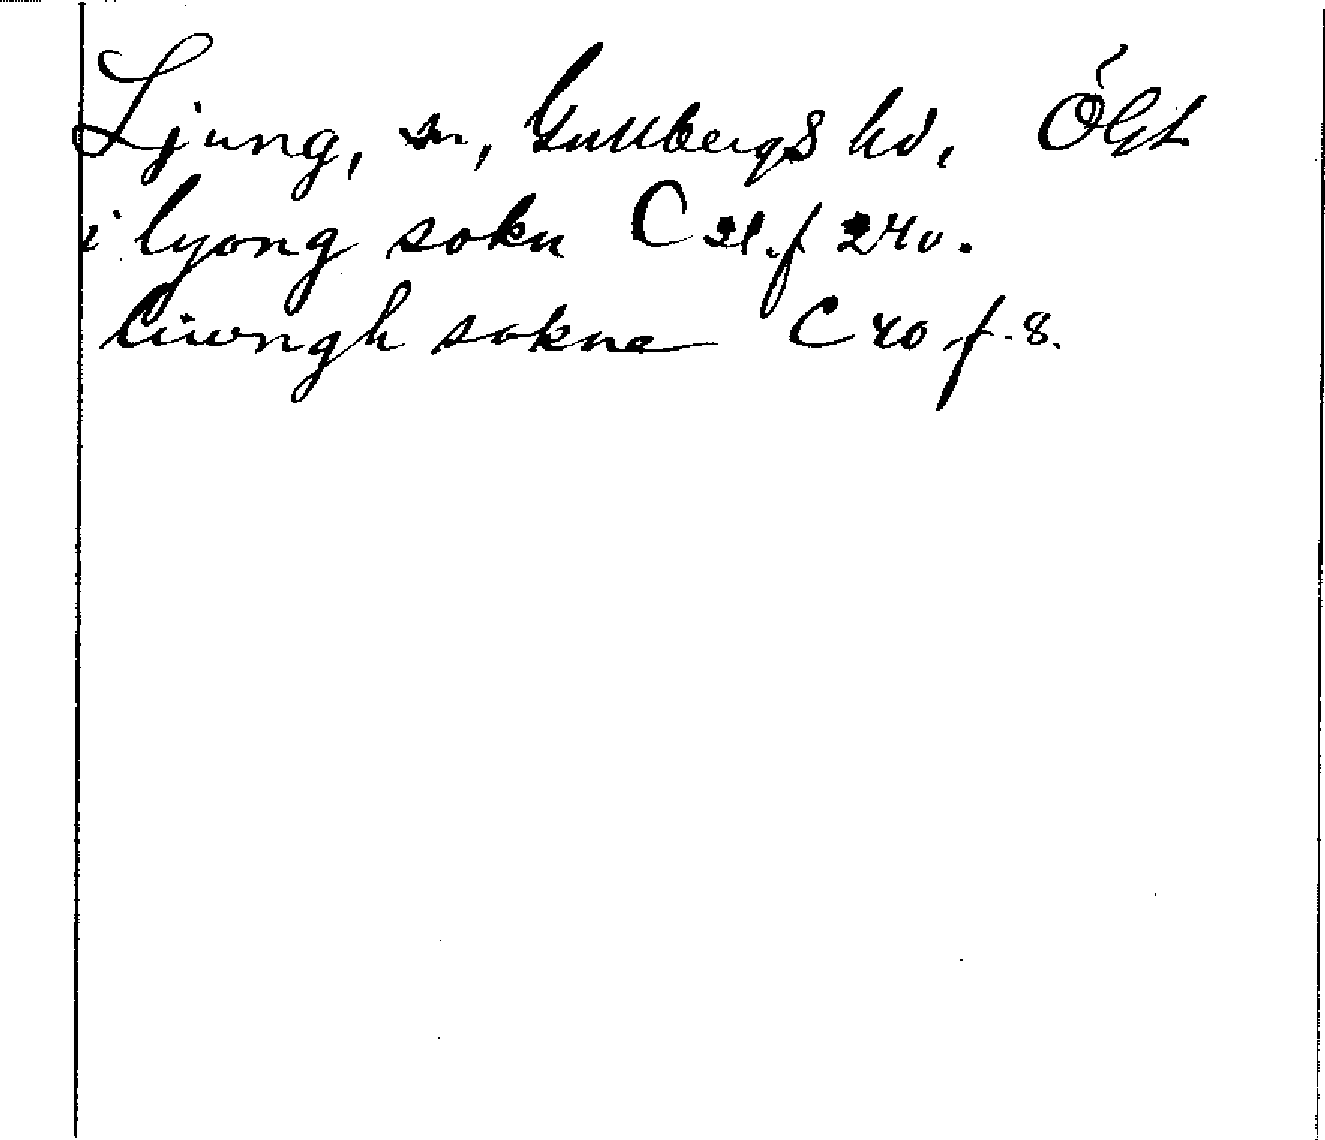 Ljung, sn, Gullbergs hd, ÖGtl
i lyong sokn C 21. f 240.
liwngh sokne C 40 f. 8.